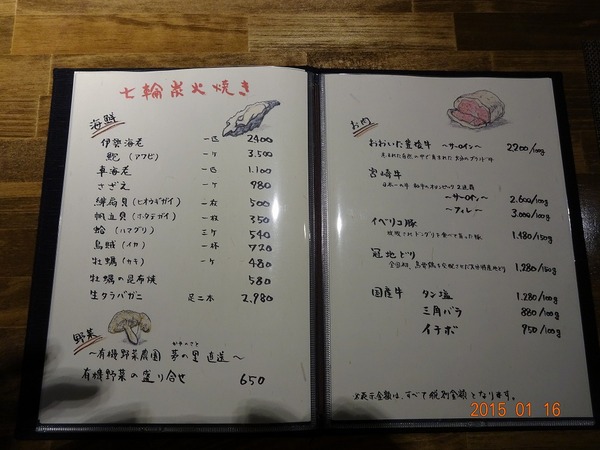 七輪炭火焼き
海鮮
伊勢海老 一匹 2400
鮑(アワビ) 一ケ 3.500
車海老 一匹 1.100
さざえ 一ケ 980
緋扇貝(ヒオウギガイ) 一枚 500
帆立貝(ホタテガイ) 一枚 350
蛤(ハマグリ) 三ケ 540
烏賊(イカ) 一杯 720
牡蠣(カキ) 一ケ 480
牡蠣の昆布焼 580
生タラバガニ 足二本 2,980
野菜
~有機野菜農園 夢の里 直送~
有機野菜の盛り合せ 650
お肉
おおいた豊後牛 ~サーロイン~ 2200/100g
宮崎牛
~サーロイン~ 2.600/100g
~フィレ~ 3.000/100g
イベリコ豚 1.480/150g
冠地どり 1,280/150g
国産牛 タン塩 1.280/100g
三角バラ 880/100g
イチボ 950/100g
※表示金額は、すべて税別金額となります。
2015 01 16